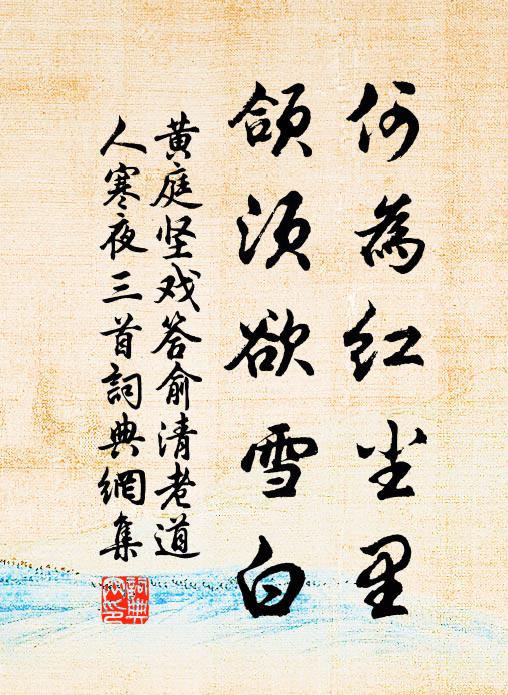 何為红尘里
颌须欲雪白
黄庭坚戏答俞清老道
人寒夜三首詞典網集